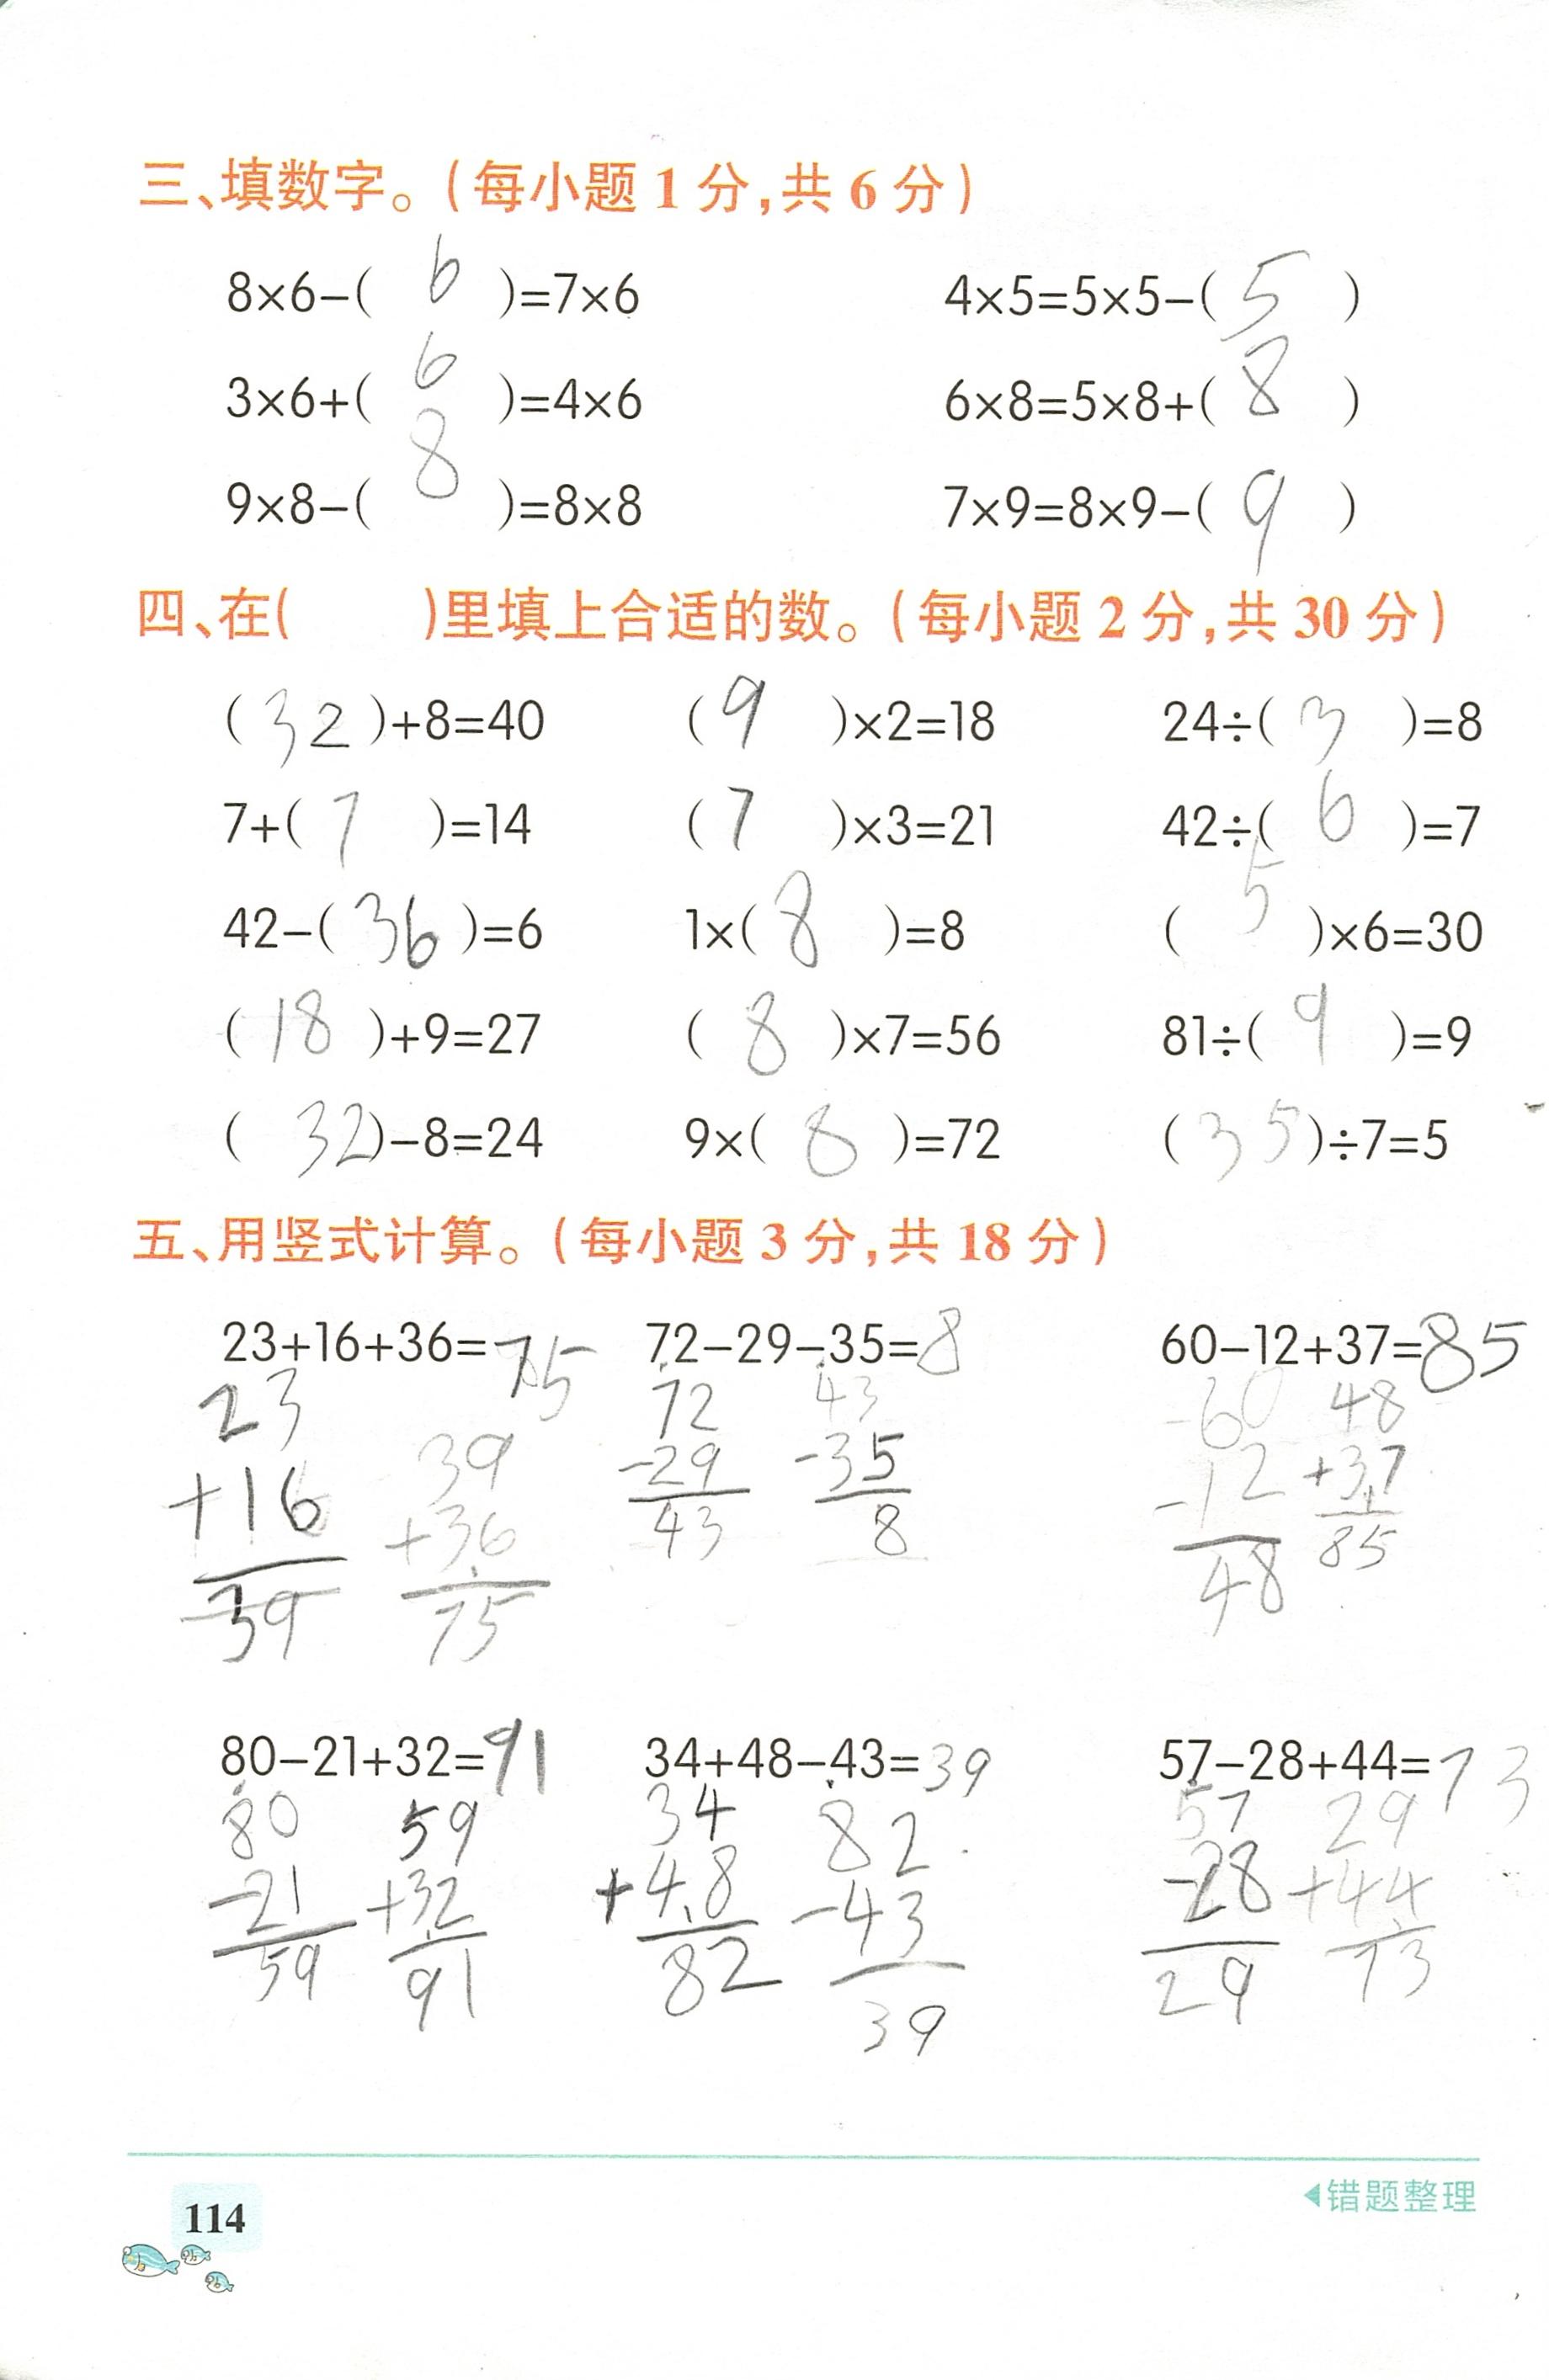 三、填数字。(每小题1分,共6分)
8×6−( 6 )=7×6 4×5=5×5−( 5 )
3×6+( 6 )=4×6 6×8=5×8+( 8 )
9×8−( 8 )=8×8 7×9=8×9−( 9 )
四、在( )里填上合适的数。(每小题2分,共30分)
( 32 )+8=40 ( 9 )×2=18 24÷( 3 )=8
7+( 7 )=14 ( 7 )×3=21 42÷( 6 )=7
42−( 36 )=6 1×( 8 )=8 ( 5 )×6=30
( 18 )+9=27 ( 8 )×7=56 81÷( 9 )=9
( 32 )−8=24 9×( 8 )=72 ( 35 )÷7=5
五、用竖式计算。(每小题3分,共18分)
23+16+36=75 72−29−35=8 60−12+37=85
23 39 72 43 60 48
+16 +36 −29 −35 −12 +37
39 75 43 8 48 85
80−21+32=91 34+48−43=39 57−28+44=73
80 59 34 82 57 29
−21 +32 +48 −43 −28 +44
59 91 82 39 29 73
114
错题整理